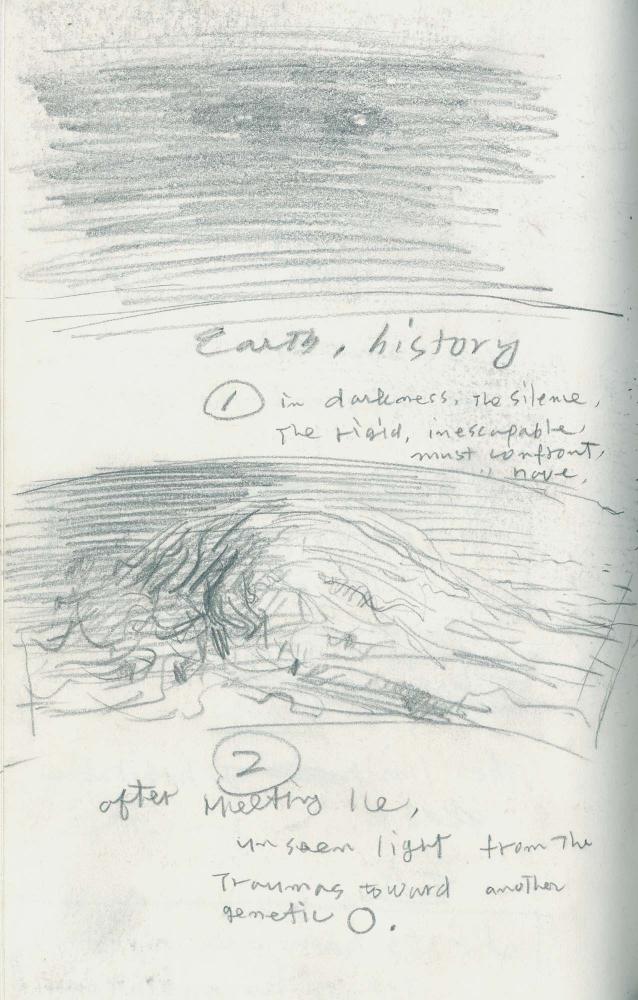 Earth, history
① in darkness, The silence,
The rigid, inescapable,
must confront,
" move,
②
after Melting Ice,
unseen light from The
Traumas toward another
genetic O.